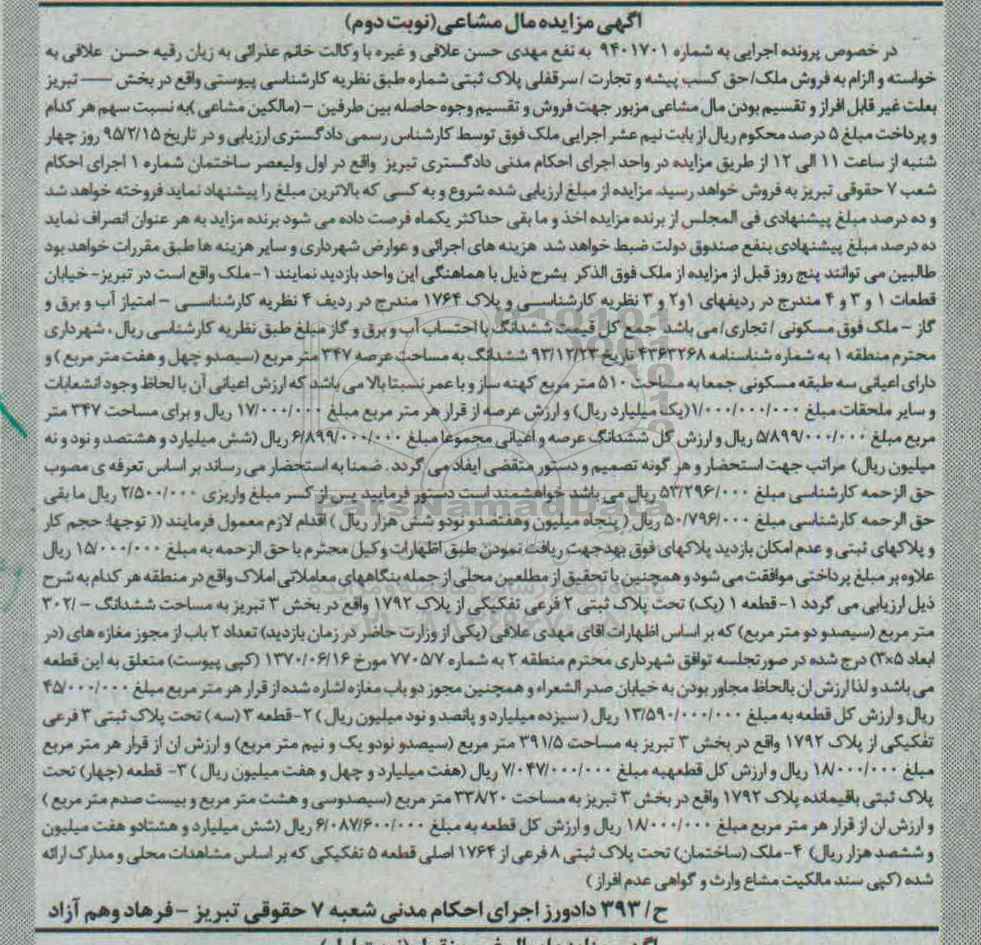 آگهی مزایده مال مشاعی(نوبت دوم)
در خصوص پرونده اجرایی به شماره ۹۴۰۱۷۰۱ به نفع مهدی حسن علافی و غیره با وکالت خانم عذرائی به زیان رقیه حسن علافی به
خواسته و الزام به فروش ملک/حق کسب پیشه و تجارت / سرقفلی پلاک ثبتی شماره طبق نظریه کارشناسی پیوستی واقع در بخش —— تبریز
بعلت غیر قابل افراز و تقسیم بودن مال مشاعی مزبور جهت فروش و تقسیم وجوه حاصله بین طرفین – (مالکین مشاعی )به نسبت سهم هر کدام
و پرداخت مبلغ ۵ درصد محکوم ریال از بابت نیم عشر اجرایی ملک فوق توسط کارشناس رسمی دادگستری ارزیابی و در تاریخ ۹۵/۲/۱۵ روز چهار
شنبه از ساعت ۱۱ الی ۱۲ از طریق مزایده در واحد اجرای احکام مدنی دادگستری تبریز واقع در اول ولیعصر ساختمان شماره ۱ اجرای احکام
شعب ۷ حقوقی تبریز به فروش خواهد رسید. مزایده از مبلغ ارزیابی شده شروع و به کسی که بالاترین مبلغ را پیشنهاد نماید فروخته خواهد شد
و ده درصد مبلغ پیشنهادی فی المجلس از برنده مزایده اخذ و ما بقی حداکثر یکماه فرصت داده می شود برنده مزاید به هر عنوان انصراف نماید
ده درصد مبلغ پیشنهادی بنفع صندوق دولت ضبط خواهد شد هزینه های اجرائی و عوارض شهرداری و سایر هزینه ها طبق مقررات خواهد بود
طالبین می توانند پنج روز قبل از مزایده از ملک فوق الذکر بشرح ذیل با هماهنگی این واحد بازدید نمایند ۱-ملک واقع است در تبریز-خیابان
قطعات ۱ و ۳ و ۴ مندرج در ردیفهای ۱و۲ و ۳ نظریه کارشناسی و پلاک ۱۷۶۴ مندرج در ردیف ۴ نظریه کارشناسی – امتیاز آب و برق و
گاز – ملک فوق مسکونی / تجاری/ می باشد جمع کل قیمت ششدانگ با احتساب آب و برق و گاز مبلغ طبق نظریه کارشناسی ریال . شهرداری
محترم منطقه ۱ به شماره شناسنامه ۴۳۶۳۲۶۸ تاریخ ۹۳/۱۲/۲۳ ششدانگ به مساحت عرصه ۳۴۷ متر مربع (سیصدو چهل و هفت متر مربع ) و
دارای اعیانی سه طبقه مسکونی جمعا به مساحت ۵۱۰ متر مربع کهنه ساز و با عمر نسبتا بالا می باشد که ارزش اعیانی آن با لحاظ وجود انشعابات
و سایر ملحقات مبلغ ۱/۰۰۰/۰۰۰/۰۰۰(یک میلیارد ریال) و ارزش عرصه از قرار هر متر مربع مبلغ ۱۷/۰۰۰/۰۰۰ ریال و برای مساحت ۳۴۷ متر
مربع مبلغ ۵/۸۹۹/۰۰۰/۰۰۰ ریال و ارزش کل ششدانگ عرصه و اعیانی مجموعا مبلغ ۶/۸۹۹/۰۰۰/۰۰۰ ریال (شش میلیارد و هشتصد و نود و نه
میلیون ریال) مراتب جهت استحضار و هر گونه تصمیم و دستور متقضی ایفاد می گردد . ضمنا به استحضار می رساند بر اساس تعرفه ی مصوب
حق الزحمه کارشناسی مبلغ ۵۳/۲۹۶/۰۰۰ ریال می باشد خواهشمند است دستور فرمایید پس از کسر مبلغ واریزی ۲/۵۰۰/۰۰۰ ریال ما بقی
حق الرحمه کارشناسی مبلغ ۵۰/۷۹۶/۰۰۰ ریال ( پنجاه میلیون وهفتصدو نودو شش هزار ریال ) اقدام لازم معمول فرمایند (( توجها: حجم کار
و پلاکهای ثبتی و عدم امکان بازدید پلاکهای فوق بهدجهت ریافت نمودن طبق اظهارات وکیل محترم با حق الزحمه به مبلغ ۱۵/۰۰۰/۰۰۰ ریال
علاوه بر مبلغ پرداختی موافقت می شود و همچنین با تحقیق از مطلعین محلی از جمله بنگاههای معاملاتی املاک واقع در منطقه هر کدام به شرح
ذیل ارزیابی می گردد ۱- قطعه ۱ (یک) تحت پلاک ثبتی ۲ فرعی تفکیکی از پلاک ۱۷۹۲ واقع در بخش ۳ تبریز به مساحت ششدانگ – /۳۰۲
متر مربع (سیصدو دو متر مربع) که بر اساس اظهارات اقای مهدی علافی (یکی از وزارت حاضر در زمان بازدید) تعداد ۲ باب از مجوز مغازه های (در
ابعاد ۵×۳) درج شده در صورتجلسه توافق شهرداری محترم منطقه ۲ به شماره ۷۷۰۵/۷ مورخ ۱۳۷۰/۰۶/۱۶ (کپی پیوست) متعلق به این قطعه
می باشد و لذا ارزش ان بالحاظ مجاور بودن به خیابان صدر الشعراء و همچنین مجوز دو باب مغازه اشاره شده از قرار هر متر مربع مبلغ ۴۵/۰۰۰/۰۰۰
ریال و ارزش کل قطعه به مبلغ ۱۳/۵۹۰/۰۰۰/۰۰۰ ریال ( سیزده میلیارد و پانصد و نود میلیون ریال ) ۲-قطعه ۳ (سه ) تحت پلاک ثبتی ۳ فرعی
تفکیکی از پلاک ۱۷۹۲ واقع در بخش ۳ تبریز به مساحت ۳۹۱/۵ متر مربع (سیصدو نودو یک و نیم متر مربع) و ارزش ان از قرار هر متر مربع
مبلغ ۱۸/۰۰۰/۰۰۰ ریال و ارزش کل قطعهبه مبلغ ۷/۰۴۷/۰۰۰/۰۰۰ ریال (هفت میلیارد و چهل و هفت میلیون ریال ) ۳- قطعه (چهار) تحت
پلاک ثبتی باقیمانده پلاک ۱۷۹۲ واقع در بخش ۳ تبریز به مساحت ۳۳۸/۲۰ متر مربع (سیصدوسی و هشت متر مربع و بیست صدم متر مربع )
و ارزش ان از قرار هر متر مربع مبلغ ۱۸/۰۰۰/۰۰۰ ریال و ارزش کل قطعه به مبلغ ۶/۰۸۷/۶۰۰/۰۰۰ ریال (شش میلیارد و هشتادو هفت میلیون
و ششصد هزار ریال) ۴-ملک (ساختمان) تحت پلاک ثبتی ۸ فرعی از ۱۷۶۴ اصلی قطعه ۵ تفکیکی که بر اساس مشاهدات محلی و مدارک ارائه
شده (کپی سند مالکیت مشاع وارث و گواهی عدم افراز )
ح/ ۳۹۳ دادورز اجرای احکام مدنی شعبه ۷ حقوقی تبریز –فرهاد وهم آزاد
ParsNamadData